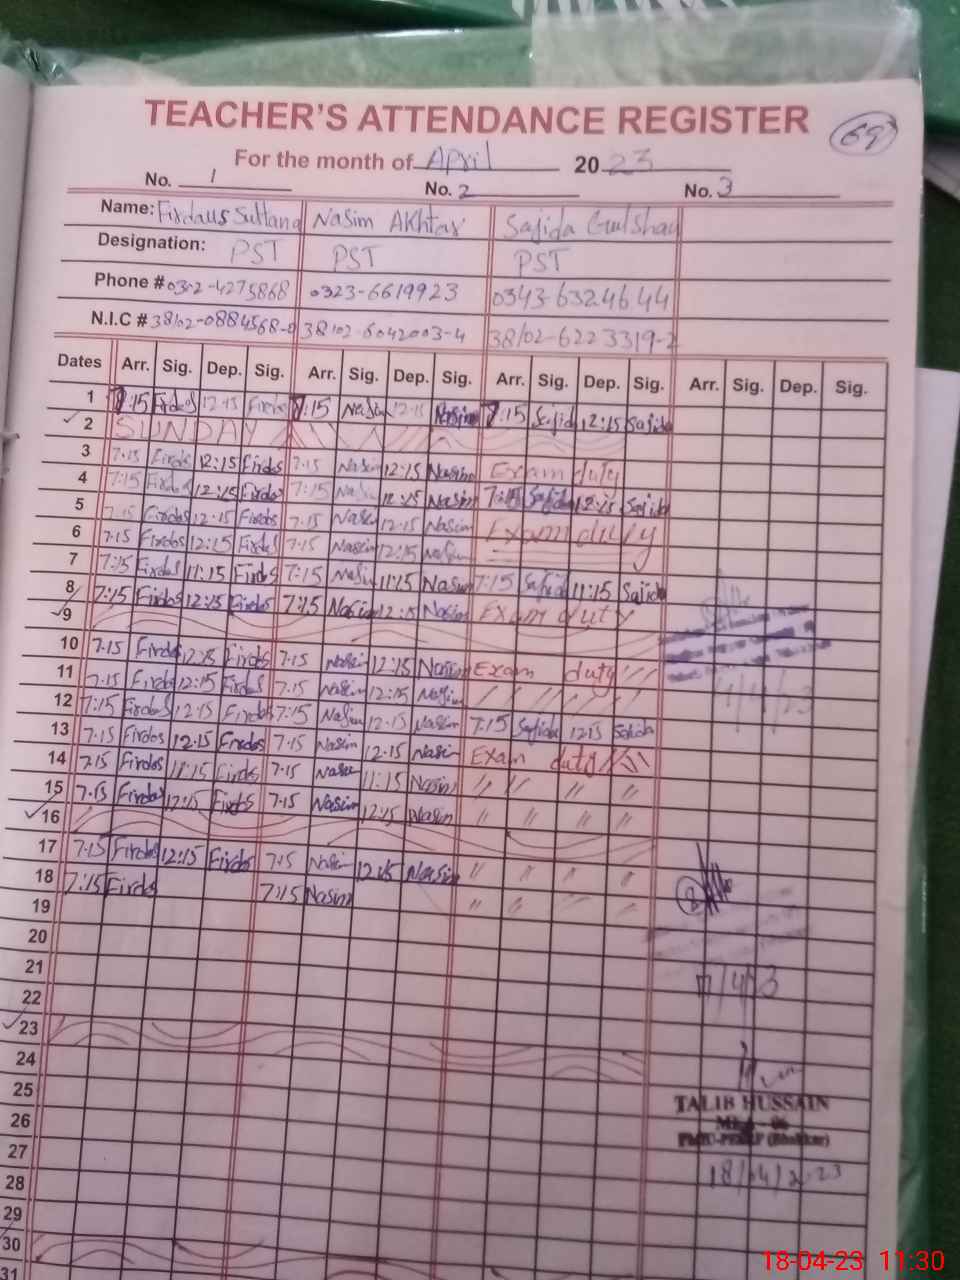 TEACHER'S ATTENDANCE REGISTER
69
For the month of April 2023
No. 1 No. 2 No. 3
Name: Firdaus Sultana Nasim Akhtar Sajida Gulshan
Designation: PST PST PST
Phone # 0302-4275868 0323-6619923 0343-6324644
N.I.C # 38102-0884568-0 38102-6042003-4 38102-6223319-2
Dates Arr. Sig. Dep. Sig. Arr. Sig. Dep. Sig. Arr. Sig. Dep. Sig. Arr. Sig. Dep. Sig.
1 7:15 Firdos 12:15 Firdos 7:15 Nasim 12:15 Nasim 7:15 Sajida 12:15 Sajida
2 SUNDAY
3 7:15 Firdos 12:15 Firdos 7:15 Nasim 12:15 Nasim Exam duty
4 7:15 Firdos 12:15 Firdos 7:15 Nasim 12:15 Nasim 7:15 Sajida 12:15 Sajida
5 7:15 Firdos 12:15 Firdos 7:15 Nasim 12:15 Nasim Exam duty
6 7:15 Firdos 12:15 Firdos 7:15 Nasim 12:15 Nasim
7 7:15 Firdos 11:15 Firdos 7:15 Nasim 11:15 Nasim 7:15 Sajida 11:15 Sajida
8 7:15 Firdos 12:15 Firdos 7:15 Nasim 12:15 Nasim Exam duty
9
10 7:15 Firdos 12:15 Firdos 7:15 Nasim 12:15 Nasim Exam duty
11 7:15 Firdos 12:15 Firdos 7:15 Nasim 12:15 Nasim " " " "
12 7:15 Firdos 12:15 Firdos 7:15 Nasim 12:15 Nasim 7:15 Sajida 12:15 Sajida
13 7:15 Firdos 12:15 Firdos 7:15 Nasim 12:15 Nasim Exam duty
14 7:15 Firdos 11:15 Firdos 7:15 Nasim 11:15 Nasim " " " "
15 7:15 Firdos 12:15 Firdos 7:15 Nasim 12:15 Nasim " " " "
16
17 7:15 Firdos 12:15 Firdos 7:15 Nasim 12:15 Nasim " " " "
18 7:15 Firdos 7:15 Nasim " " " "
19
20
21
22
23
24
25
26
27
28
29
30
31
TALIB HUSSAIN
18/04/2023
18-04-23 11:30